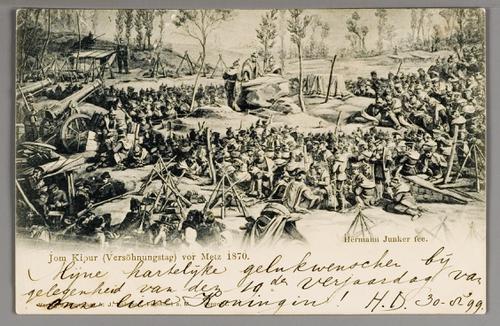 Hermann Junker fec.
Jom Kipur (Versöhnungstag) vor Metz 1870.
Mijne hartelijke gelukwenschen bij
gelegenheid van den 19den verjaardag van
onze lieve Koningin! H.D. 30-8-99